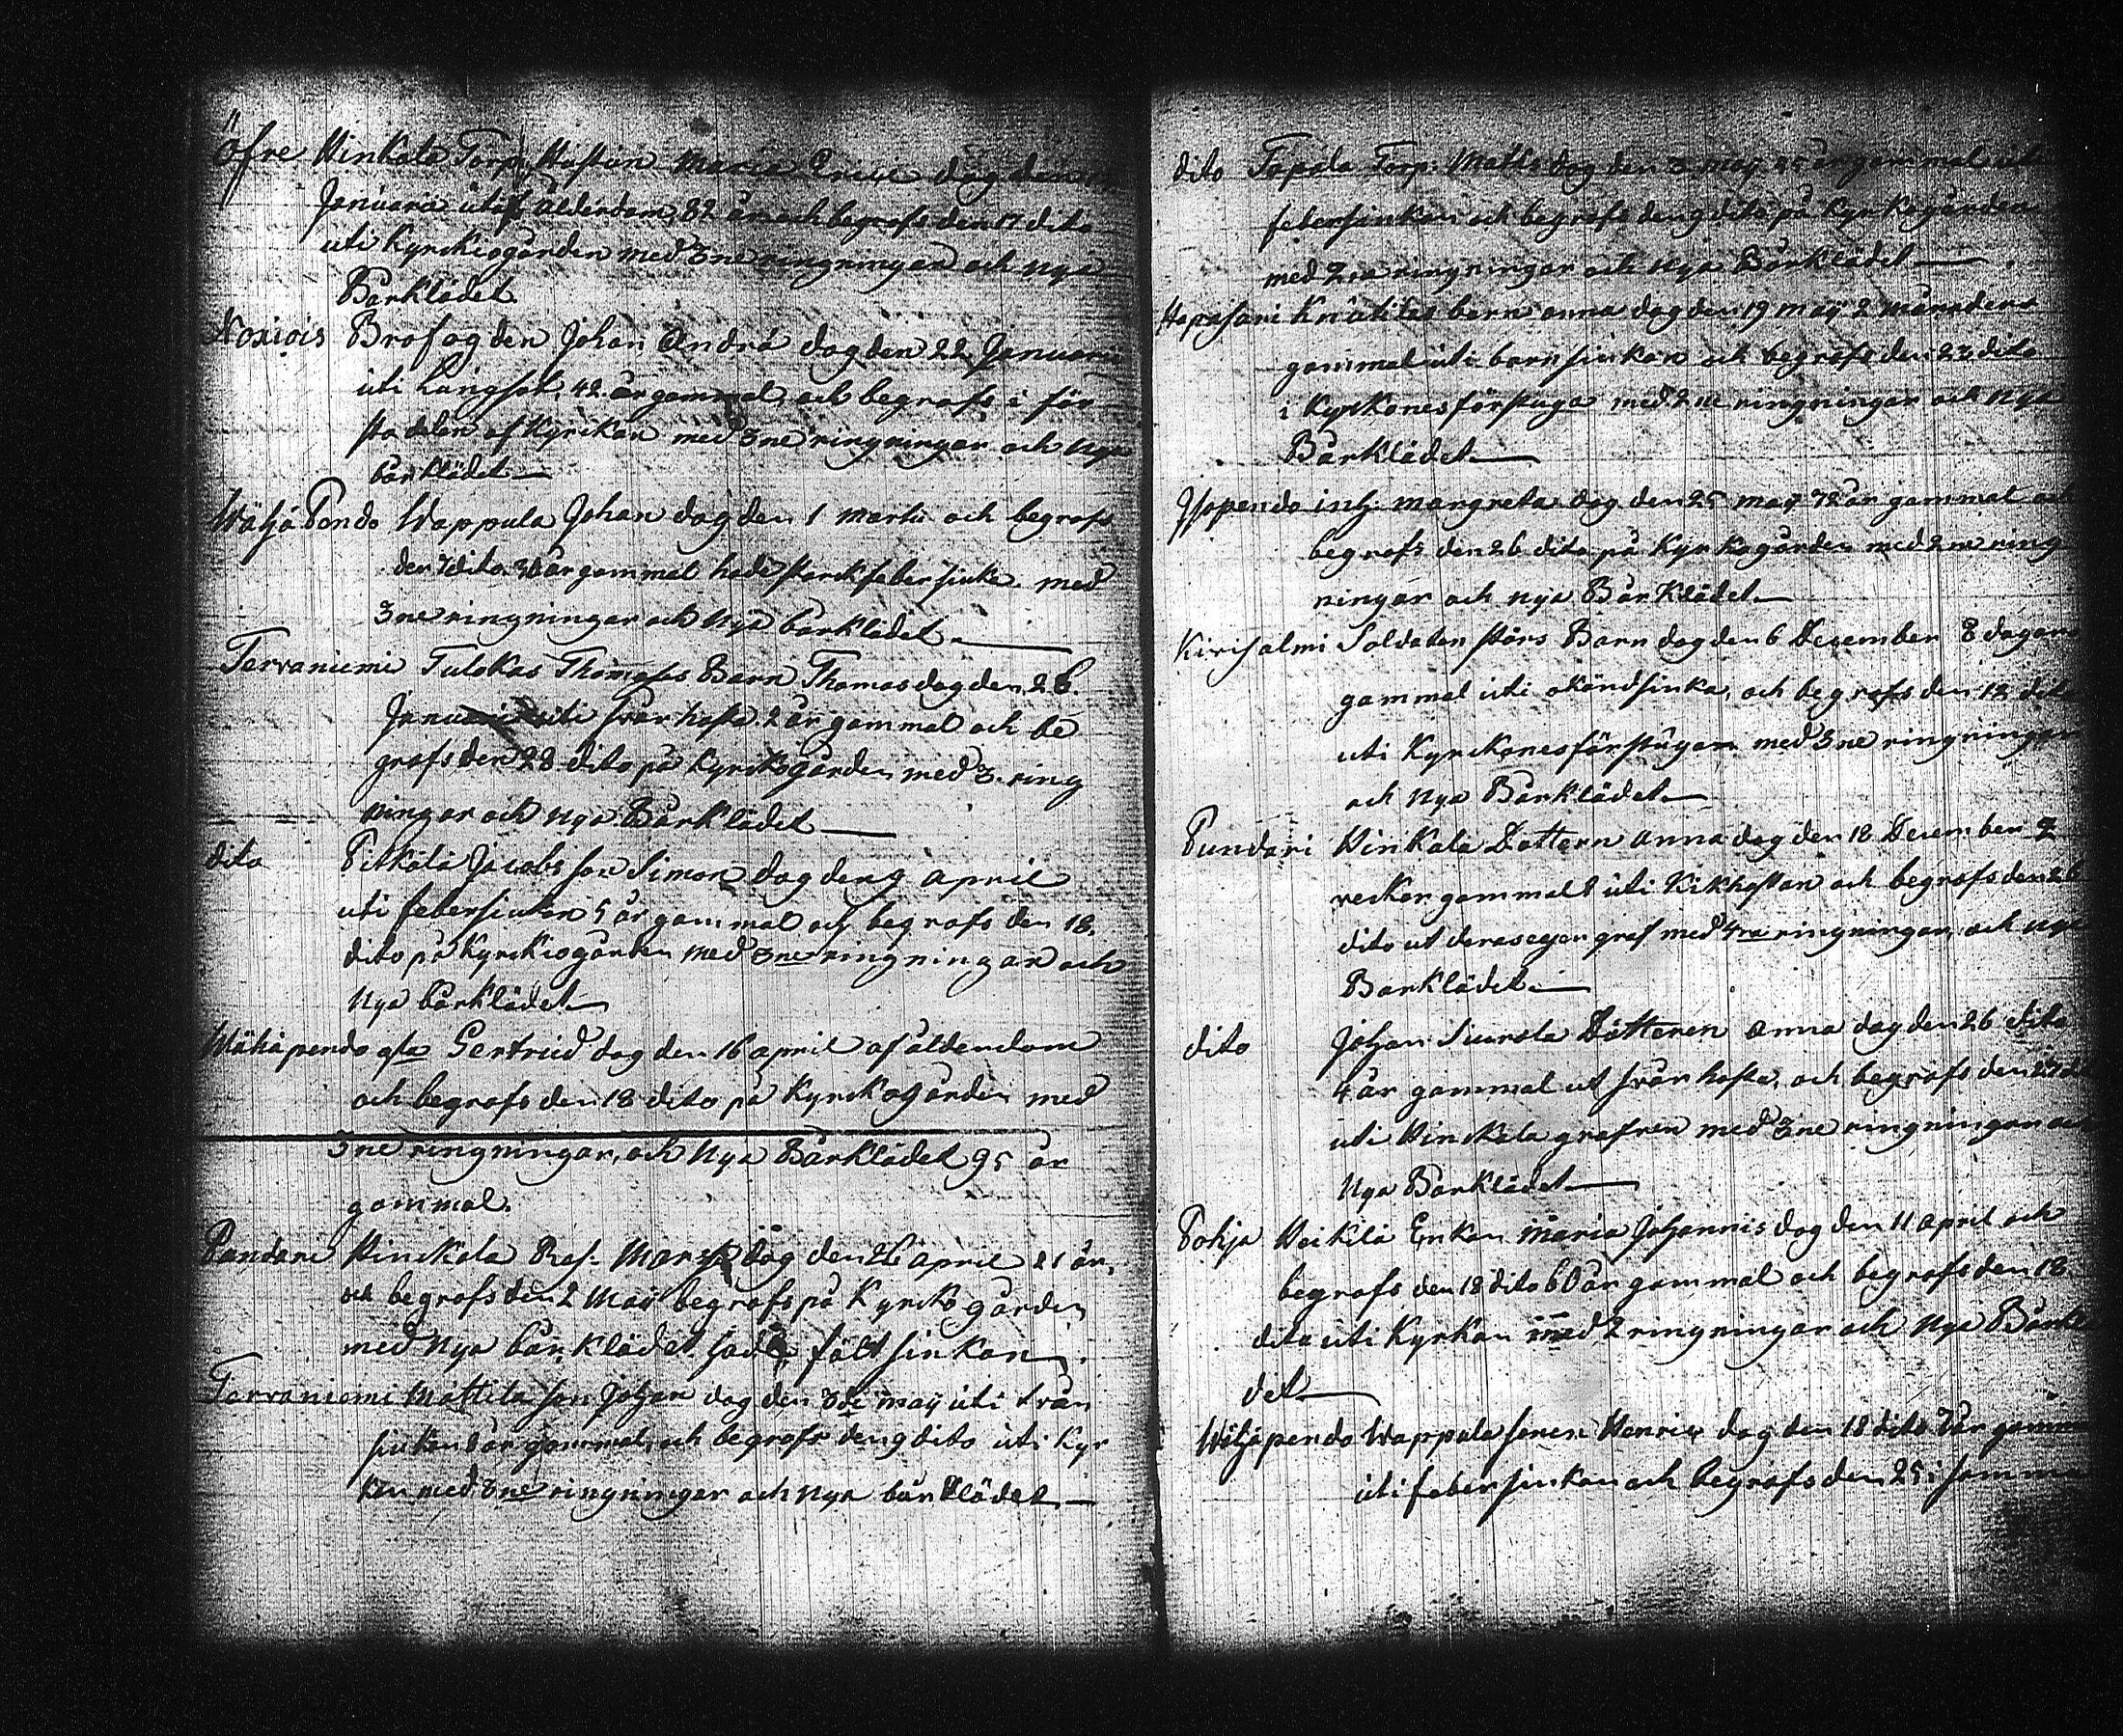 öfre Hinkala Torp. Hustun Maria Ericie dog den
Januarii utaf ålderdom, 82 år och begrafs den 17 dito
uti Kyrckiogården med 3ne ringningar och nya
Bårklädet
Noxiois Brofogden Johan Andrä dog den 22 Januarii
uti Langsot, 42 år gammal, och begrafs i för
sta delen af Kyrckan med 3ne ringningar och nya
bårklädet
Wähä Pendo Wappula Johan dog den 1 martii och begrafs
den 7 dito 30 år gammal hade starck febersiuka med
3ne ringningar och Nya bårklädet
Tervaniemi Tulokas Thomases Barn Thomas dog den 26
Januarii uti svår hosta 2 år gammal och be
grafs den 28 dito på Kyrckogården med 3 ring
ningar och nya Bårklädet
dito Pitkälä Jacobs son Simon dog den 9 april
uti febersiukan 5 år gammal och begrafs den 18
dito på Kyrckiogården med 3ne ringningar och
Nya bårklädet
Wähäpendo gla Gertrud dog den 16 april af ålderdom
och begrafs den 18 dito på Kyrckogården med
3ne ringningar, och Nya Bårklädet 95 år
gammal.
Pundari Hinckala Ref. dog den 26 april 21 år,
och begrafs den 2 Maij begrafs på Kyrckogården
med Nya bårklädet hade fält siukan
Tarvaniemi Mattila son Johan dog den 3de maij uti
siukan år gammal och begrafs den 9 dito uti Kyr
kan med 3ne ringningar och Nya bårklädet
dito Tapola Torp: Matts dog den 3 maij 25 år gammal uti
febersiukan och begrafs den 9 dito på Kyrkogården
med 2ne ringningar och Nya Bårklädet
Hapasari Knuutilas barn anna dog den 19 maij 2 månader
gammal uti barnsiukan och begrafs den 23 dito
i Kyrkones förstuga med 2ne ringningar och Nya
Bårklädet
Isopendo inh: margreta dog den 25 maij 72 år gammal och
begrafs den 26 dito på Kyrkogården med 2ne ring
ningar och nya Bårklädet
Kirisalmi Soldaten Störs Barn dog den 6 December 8 dagar
gammal uti okändsiuka, och begrafs den 12 dito
uti Kyrckones förstugan med 3ne ringningar
och Nya Bårklädet
Pundari Hinkala Dottern anna dog den 18 December
veckor gammal uti Kikhostan och begrafs den 26
dito ut deras egen graf med 4ra ringningar, och nya
Bårklädet
dito Johan Siurola Dotteren anna dog den 26 dito
4 år gammal ut svår hosta, och begrafs den 27
uti Hinckala grafven med 3ne ringningar och
Nya Bårklädet
Pohja Heikilä Enkan maria Johannis dog den 11 april och
begrafs den 18 dito 60 år gammal och begrafs den 18
dito uti Kyrkan med 2 ringningar och Nya Bårklä
det
Wähäpendo Wappula sonen Henric dog den 18 dito 7 år gamm
uti febersiukan och begrafs den 25 i samma